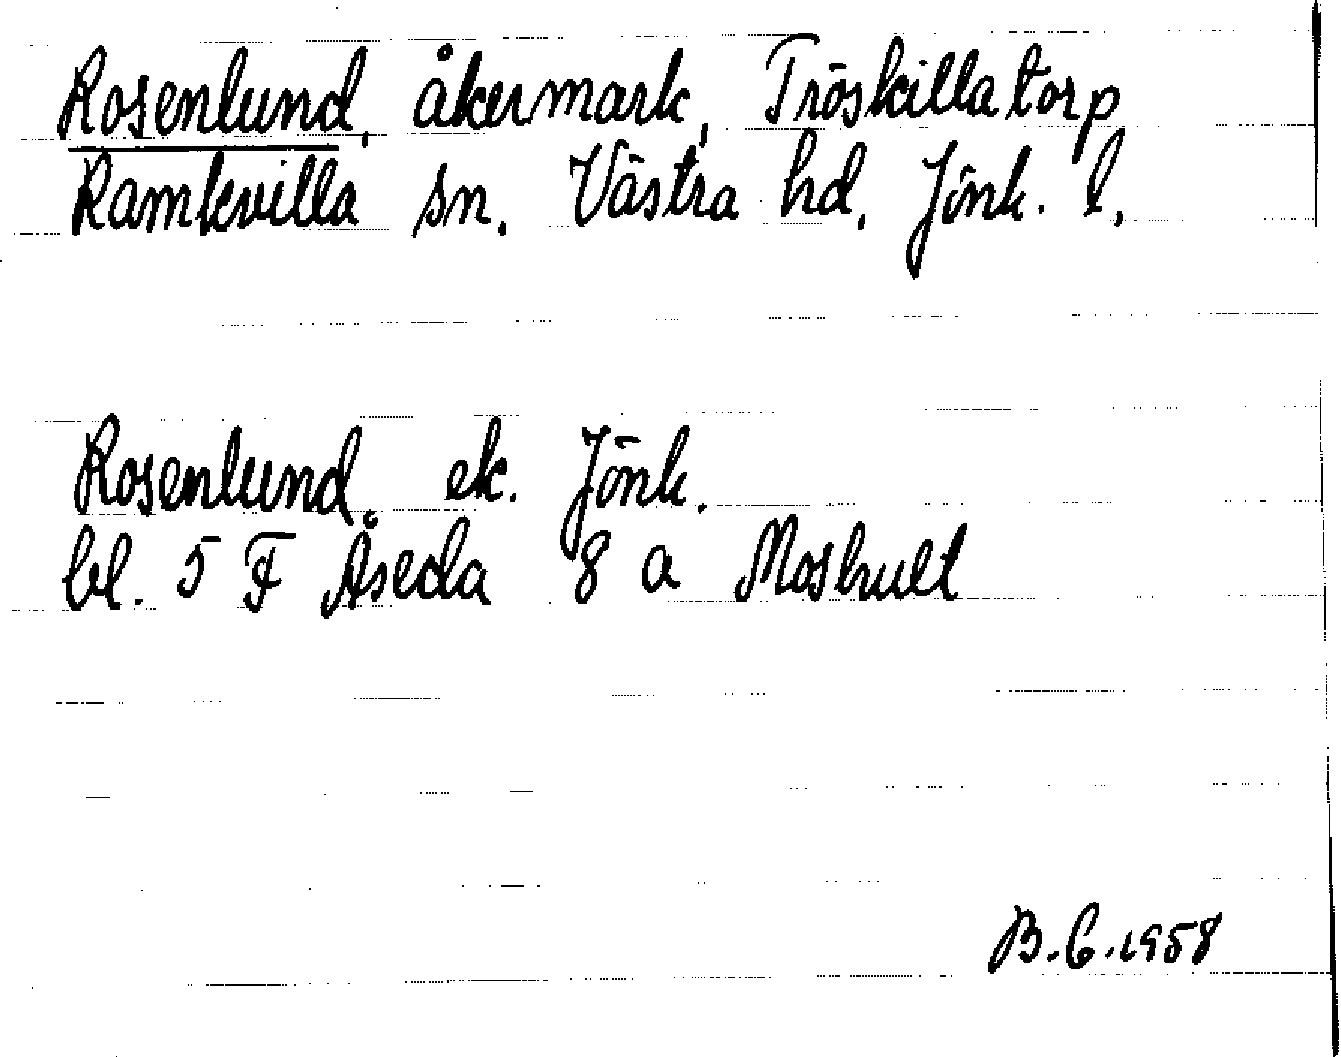 Rosenlund, åkermark, Tröskillatorp
Ramkvilla sn. Västra hd, Jönk. l.
Rosenlund ek. Jönk.
bl. 5 F Åseda 8 a Moshult
B.C.1958